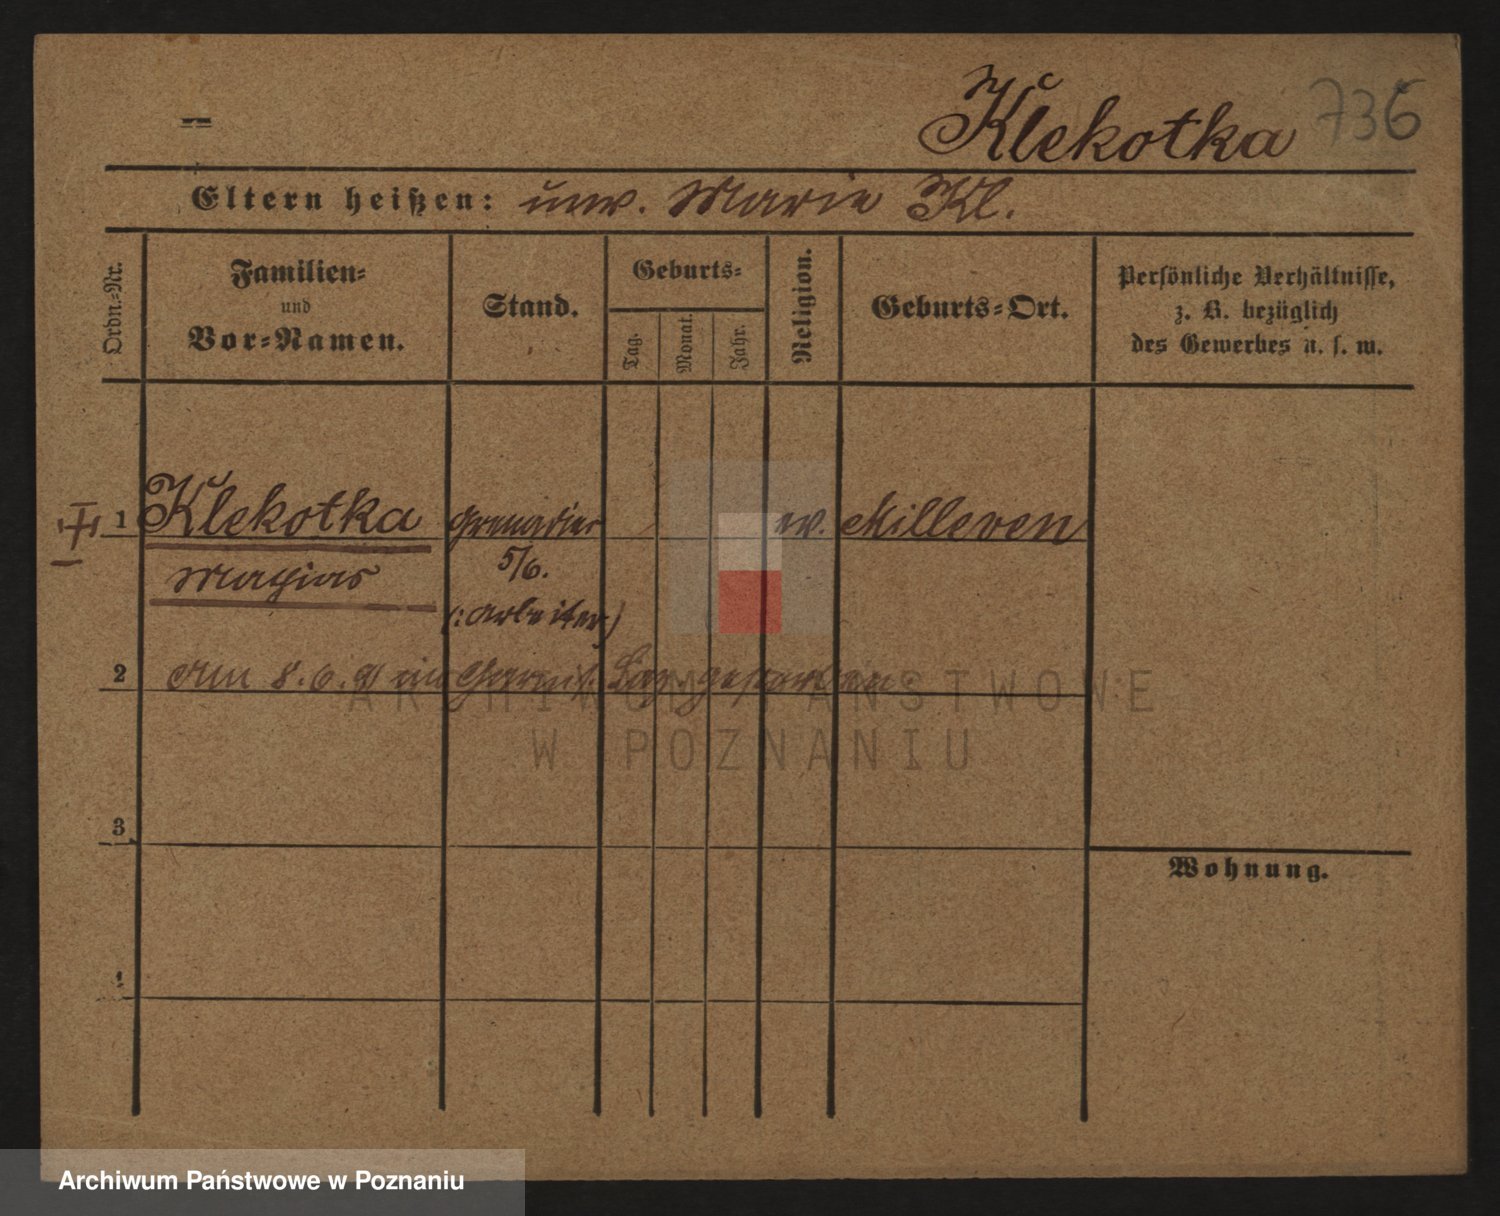 Klekotka 736
Eltern heißen: unv. Marie Kl.
Ordn.-Nr.
Familien-
und
Vor-Namen.
Stand.
Geburts-
Tag.
Monat.
Jahr.
Religion.
Geburts-Ort.
Persönliche Verhältnisse,
z. B. bezüglich
des Gewerbes u. s. w.
1 Klekotka Grenadier ev. Milleven
Mathias 5/6.
(: Arbeiter)
2 Am 8. 6. 91 im Garnis. Laz gestorben
3
4
Wohnung.
ARCHIWUM PAŃSTWOWE
W POZNANIU
Archiwum Państwowe w Poznaniu